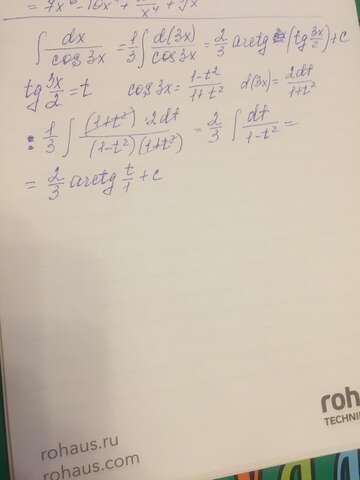 ∫ dx/cos3x = 1/3 ∫ d(3x)/cos3x = 2/3 arctg (tg 3x/2) + c
tg 3x/2 = t cos3x = (1-t²)/(1+t²) d(3x) = 2dt/(1+t²)
= 1/3 ∫ (1+t²)·2dt/((1-t²)(1+t²)) = 2/3 ∫ dt/(1-t²) =
= 2/3 arctg t/1 + c
roha
TECHNIK
rohaus.ru
rohaus.com